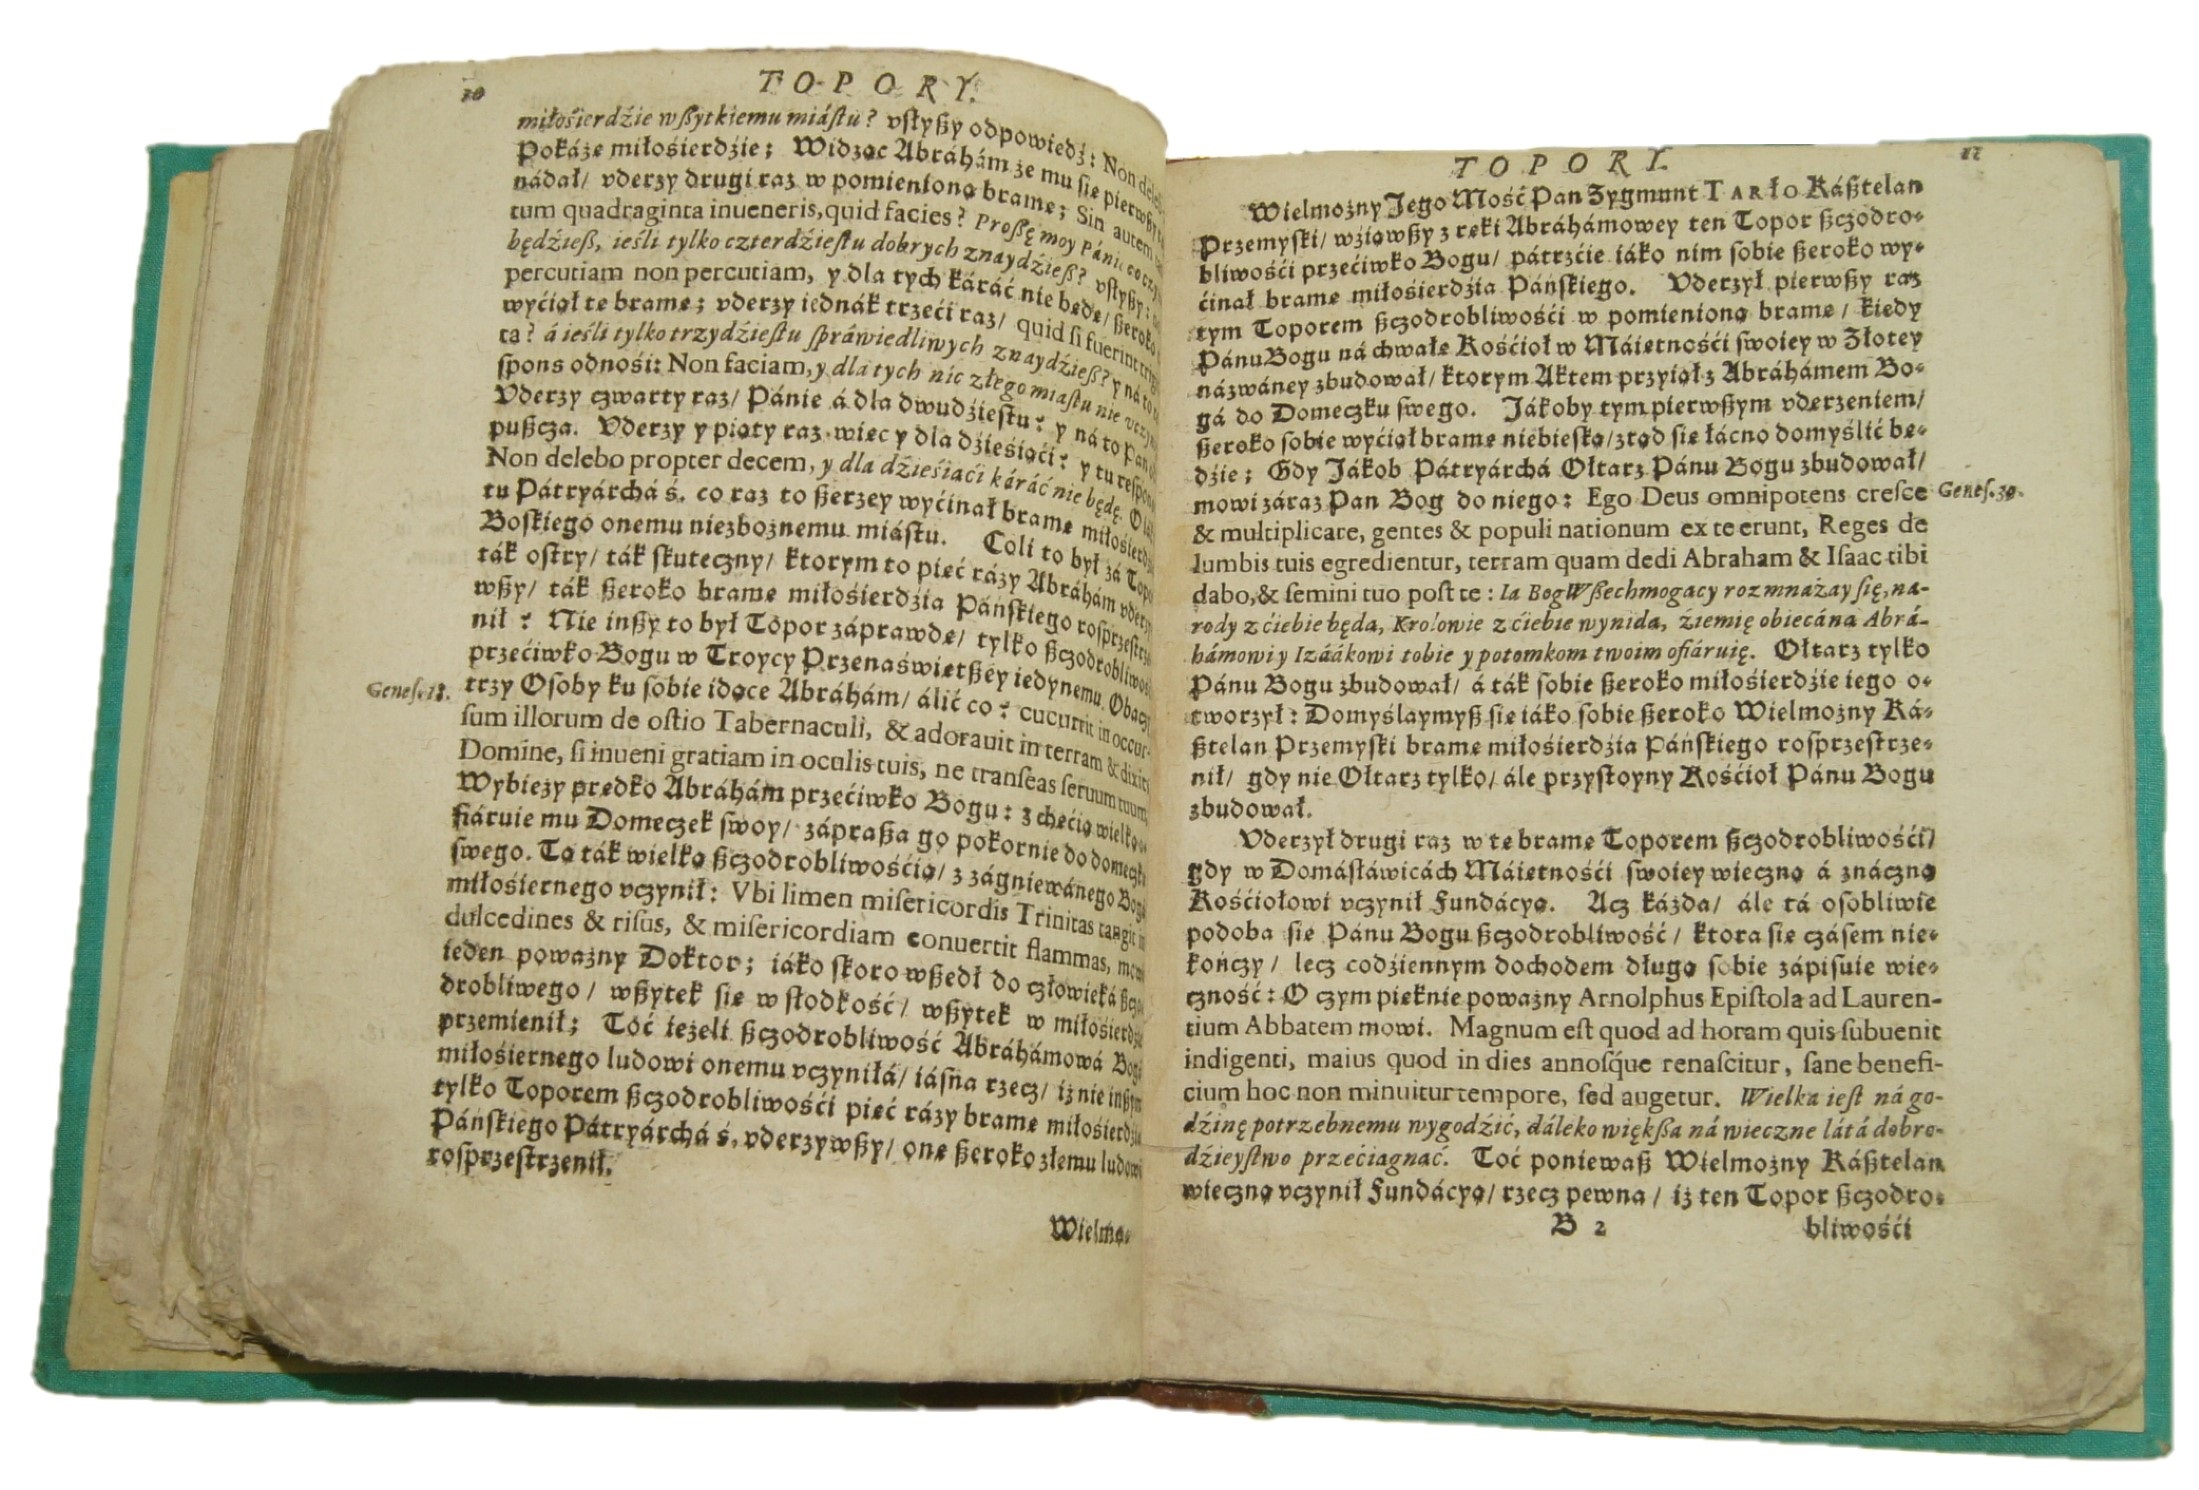 10
TOPORY.
miłośierdźie wßytkiemu miáſtu? vſłyßy odpowiedź: Non
Pokáże miłośierdźie; Widząc Abráhám że mu ſie pierwßy
nádał/ vderzy drugi raz w pomienioną bramę; Sin autem
tum quadraginta inueneris, quid facies? Proßę moy Pánie co
będźieß, ieśli tylko czterdźieſtu dobrych znaydźieß? vſłyßy:
percutiam non percutiam, y dla tych káráć nie będę/ ßeroko
wyćiął tę bramę; vderzy iednák trzeći raz/ quid ſi fuerint
ta? á ieśli tylko trzydźieſtu ſpráwiedliwych znaydźieß? y ná to
ſpons odnośi: Non faciam, y dla tych nic złego miaſtu nie
Vderzy czwarty raz/ Pánie á dla dwudźieſtu? y ná to Pan
pußcza. Vderzy y piąty raz, więc y dla dźieśiąći? y tu
Non delebo propter decem, y dla dźieśiaći káráć nie będę.
tu Pátryárchá ś. co raz to ßerzey wyćinał bramę
Boſkiego onemu niezbożnemu miáſtu. Coli to był zá
ták oſtry/ ták ſkuteczny/ ktorym to pięć rázy Abráhám
wßy/ ták ßeroko bramę miłośierdźia Páńſkiego
nił? Nie inßy to był Topor záprawdę/ tylko
przećiwko Bogu w Troycy Przenaświętßey iedynemu.
Geneſ. 18. trzy Oſoby ku ſobie idące Abráhám/ álić co? cucurrit in occur-
ſum illorum de oſtio Tabernaculi, & adorauit in terram & dixit:
Domine, ſi inueni gratiam in oculis tuis, ne tranſeas ſeruum tuum,
Wybieży prędko Abráhám przećiwko Bogu: z chęćią wielką
fiáruie mu Domeczek ſwoy/ zápraßa go pokornie do
ſwego. Tą ták wielką ßczodrobliwośćią/ z zágniewánego Bogá
miłośiernego vczynił: Vbi limen miſericordis Trinitas tangit in
dulcedines & riſus, & miſericordiam conuertit flammas,
ieden poważny Doktor; iáko ſkoro wßedł do człowieká
drobliwego/ wßytek ſię w ſłodkość/ wßytek w
przemienił; Toć ieżeli ßczodrobliwość Abráhámowá Bogá
miłośiernego ludowi onemu vczyniłá/ iáſna rzecz/ iż nie inßym
tylko Toporem ßczodrobliwośći pięć rázy bramę
Páńſkiego Pátryárchá ś. vderzywßy/ onę ßeroko złemu ludowi
roſprzeſtrzenił.
Wielmo-
TOPORY.
11
Wielmożny Jego Mość Pan Zygmunt TARŁO Káßtelan
Przemyſki/ wźiąwßy z ręki Abráhámowey ten Topor ßczodro-
bliwośći przećiwko Bogu/ pátrzćie iáko nim ſobie ßeroko wy-
ćinał bramę miłośierdźia Páńſkiego. Vderzył pierwßy raz
tym Toporem ßczodrobliwośći w pomienioną bramę/ kiedy
Pánu Bogu ná chwałę Kośćioł w Máiętnośći ſwoiey w Złotey
názwáney zbudował/ ktorym Aktem przyiął z Abráhámem Bo-
gá do Domeczku ſwego. Jákoby tym pierwßym vderzeniem/
ßeroko ſobie wyćiął bramę niebieſką/ ztąd ſię łácno domyślić bę-
dźie; Gdy Jákob Pátryárchá Ołtarz Pánu Bogu zbudował/
mowi záraz Pan Bog do niego: Ego Deus omnipotens creſce Geneſ. 30.
& multiplicare, gentes & populi nationum ex te erunt, Reges de
lumbis tuis egredientur, terram quam dedi Abraham & Iſaac tibi
dabo, & ſemini tuo poſt te: Ia Bog Wßechmogacy rozmnażay ſię, na-
rody z ćiebie będa, Krolowie z ćiebie wynida, źiemię obiecána Abrá-
hámowi y Izáákowi tobie y potomkom twoim ofiáruię. Ołtarz tylko
Pánu Bogu zbudował/ á ták ſobie ßeroko miłośierdźie iego o-
tworzył: Domyślaymyß ſię iáko ſobie ßeroko Wielmożny Ká-
ßtelan Przemyſki bramę miłośierdźia Páńſkiego roſprzeſtrze-
nił/ gdy nie Ołtarz tylko/ ále przyſtoyny Kośćioł Pánu Bogu
zbudował.
Vderzył drugi raz w tę bramę Toporem ßczodrobliwośći/
gdy w Domásłáwicách Máiętnośći ſwoiey wieczną á znáczną
Kośćiołowi vczynił Fundácyą. Acz káżda/ ále tá oſobliwie
podoba ſię Pánu Bogu ßczodrobliwość/ ktora ſię czáſem nie-
kończy/ lecz codźiennym dochodem długą ſobie zápiſuie wie-
czność: O czym pięknie poważny Arnolphus Epiſtola ad Lauren-
tium Abbatem mowi. Magnum eſt quod ad horam quis ſubuenit
indigenti, maius quod in dies annoſq́ue renaſcitur, ſane benefi-
cium hoc non minuitur tempore, ſed augetur. Wielka ieſt ná go-
dźinę potrzebnemu wygodźić, dáleko więkßa ná wieczne látá dobro-
dźieyſtwo przećiagnać. Toć poniewaß Wielmożny Káßtelan
wieczną vczynił Fundácyą/ rzecz pewna/ iż ten Topor ßczodro-
B 2 bliwośći